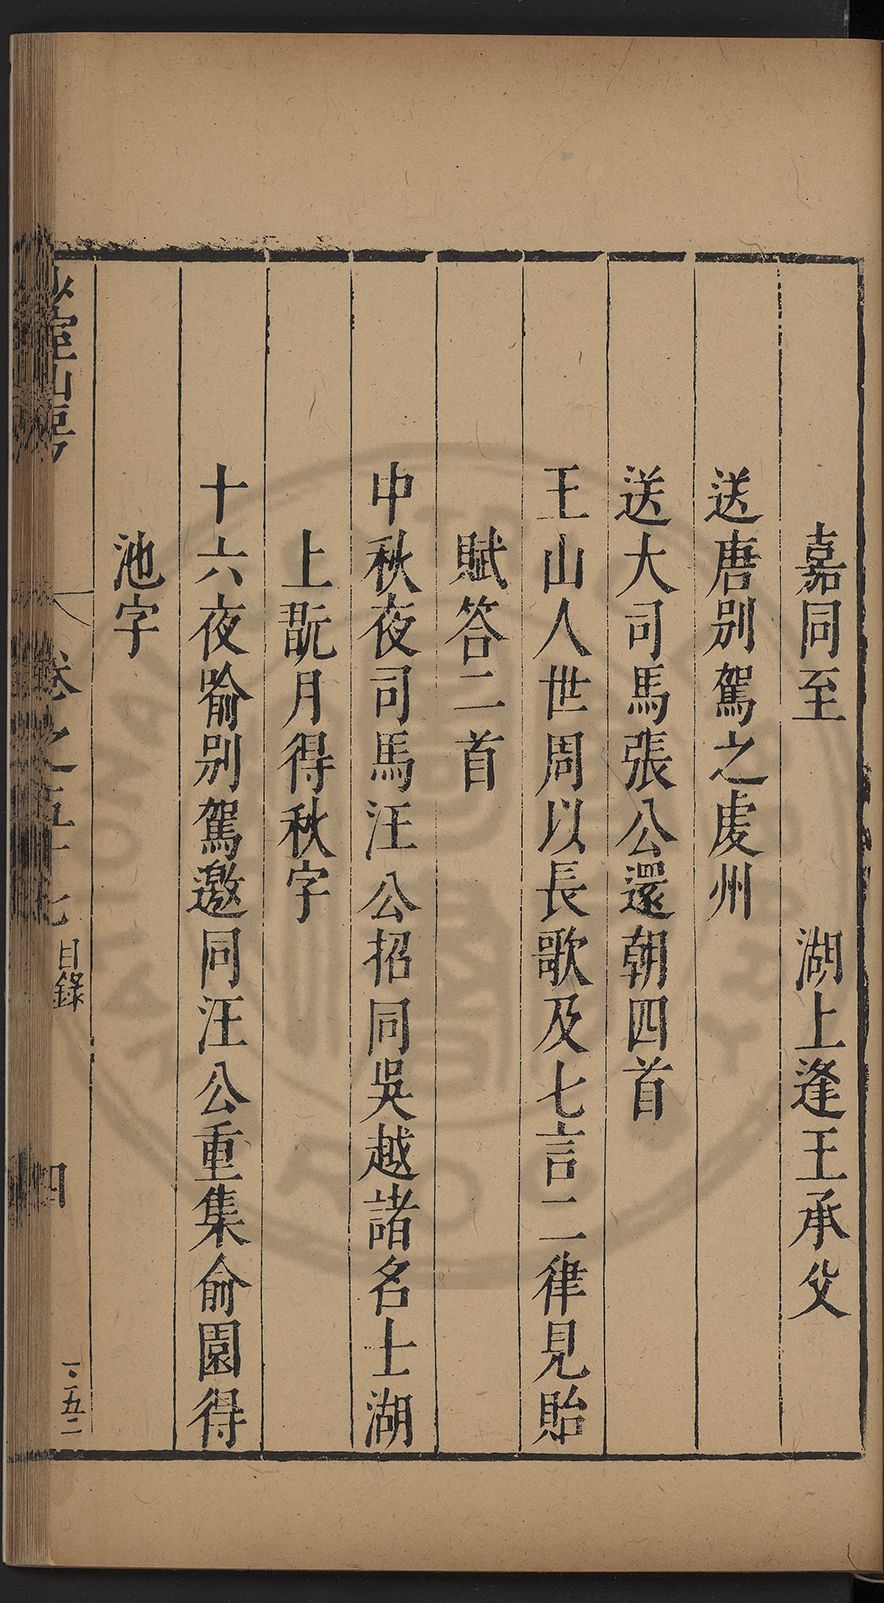 嘉同至　湖上逢王承父
送唐別駕之處州
送大司馬張公還朝四首
王山人世周以長歌及七言二律見貽
賦答二首
中秋夜司馬汪公招同吳越諸名士湖
上翫月得秋字
十六夜喻別駕邀同汪公重集俞園得
池字
少室山房　卷之五十七　目錄　四　一二五二